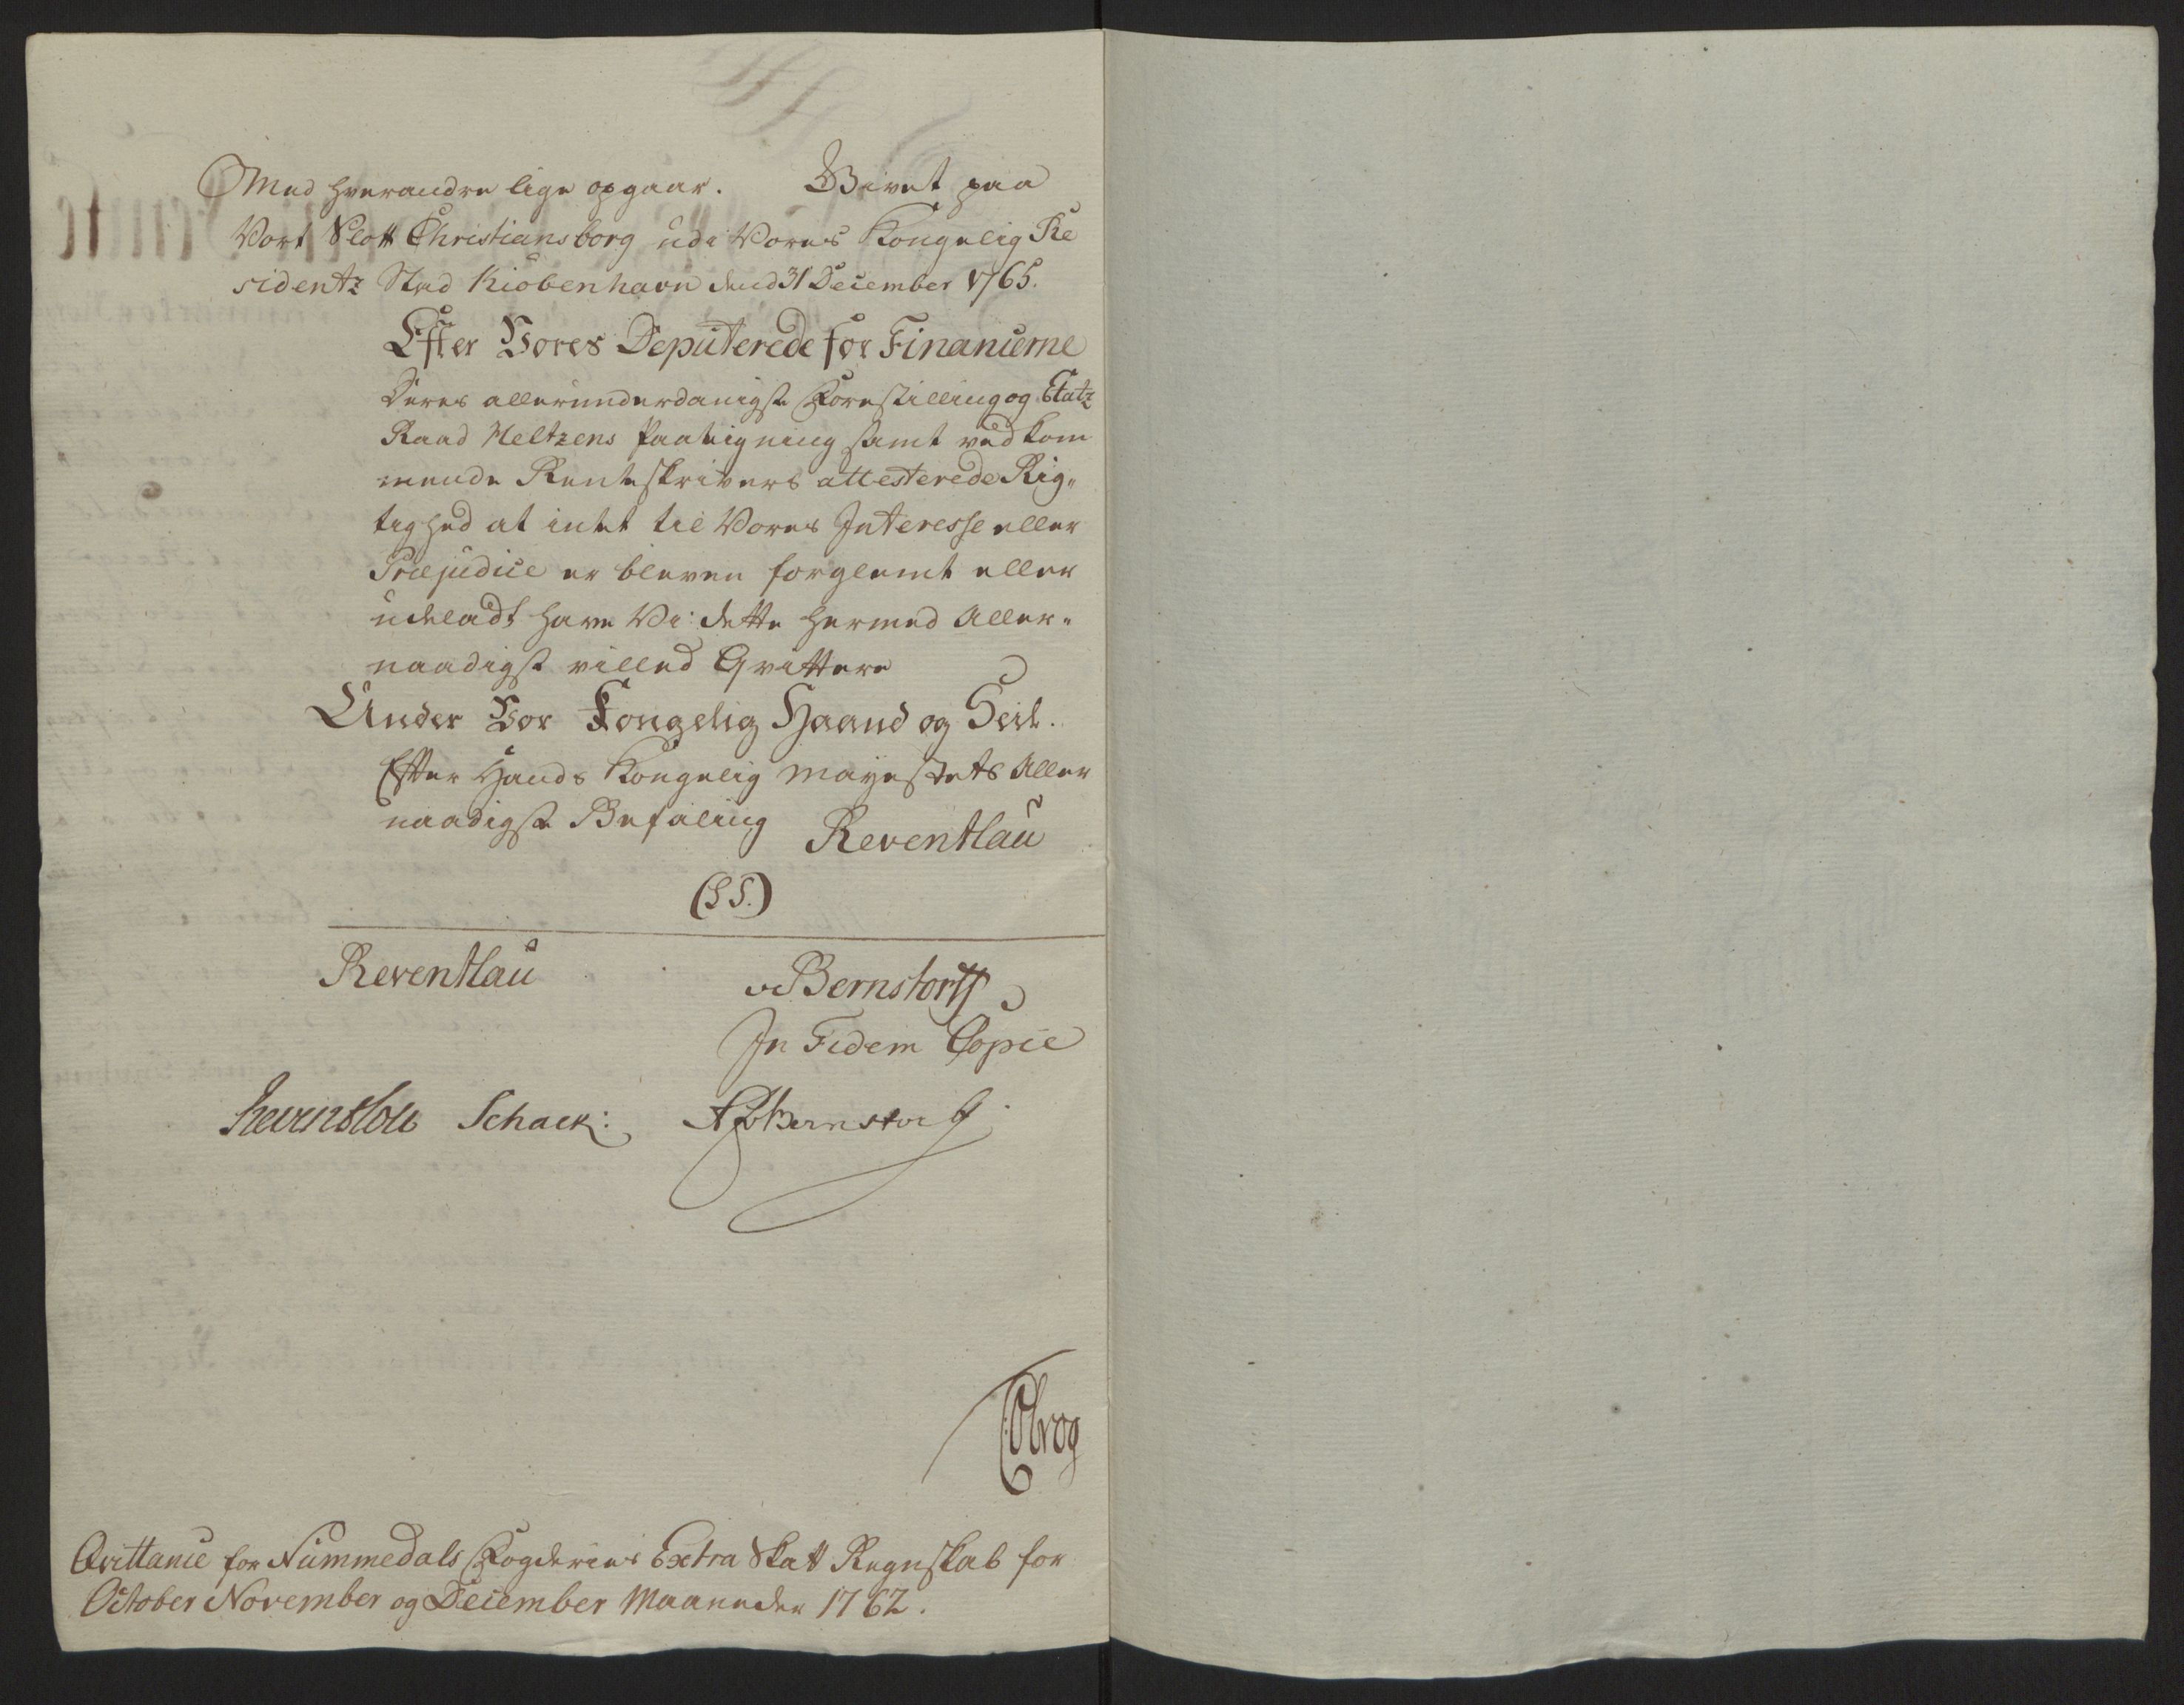 Med hverandre lige opgaar. Givet paa
Vort Slott Christiansborg udi Vores Kongelig Re
sidentz Stad Kiöbenhavn dend 31 December 1765.
Efter Vores Deputerede for Financierne
Deres allerunderdanigste Forestilling og Etatz
Raad Heltzens Paategning samt vedkom
mende Renteskrivers attesterede Rig„
tighed at intet til Vores Interesse eller
Præjudice er bleven forglemt eller
udeladt have Vi dette hermed Aller„
naadigst villed Qvittere
Under Vor Kongelig Haand og Seil.
Efter Hands Kongelig Mayestets Aller
naadigste Befaling Reventlau
(L S.)
Reventlau vBernstorff
In Fidem Copie
Reventlou Schack: APvBernstorff.
Qvittance for Nummedals Fogderies Extra Skatt Regnskab for
October November og December Maaneder 1762.